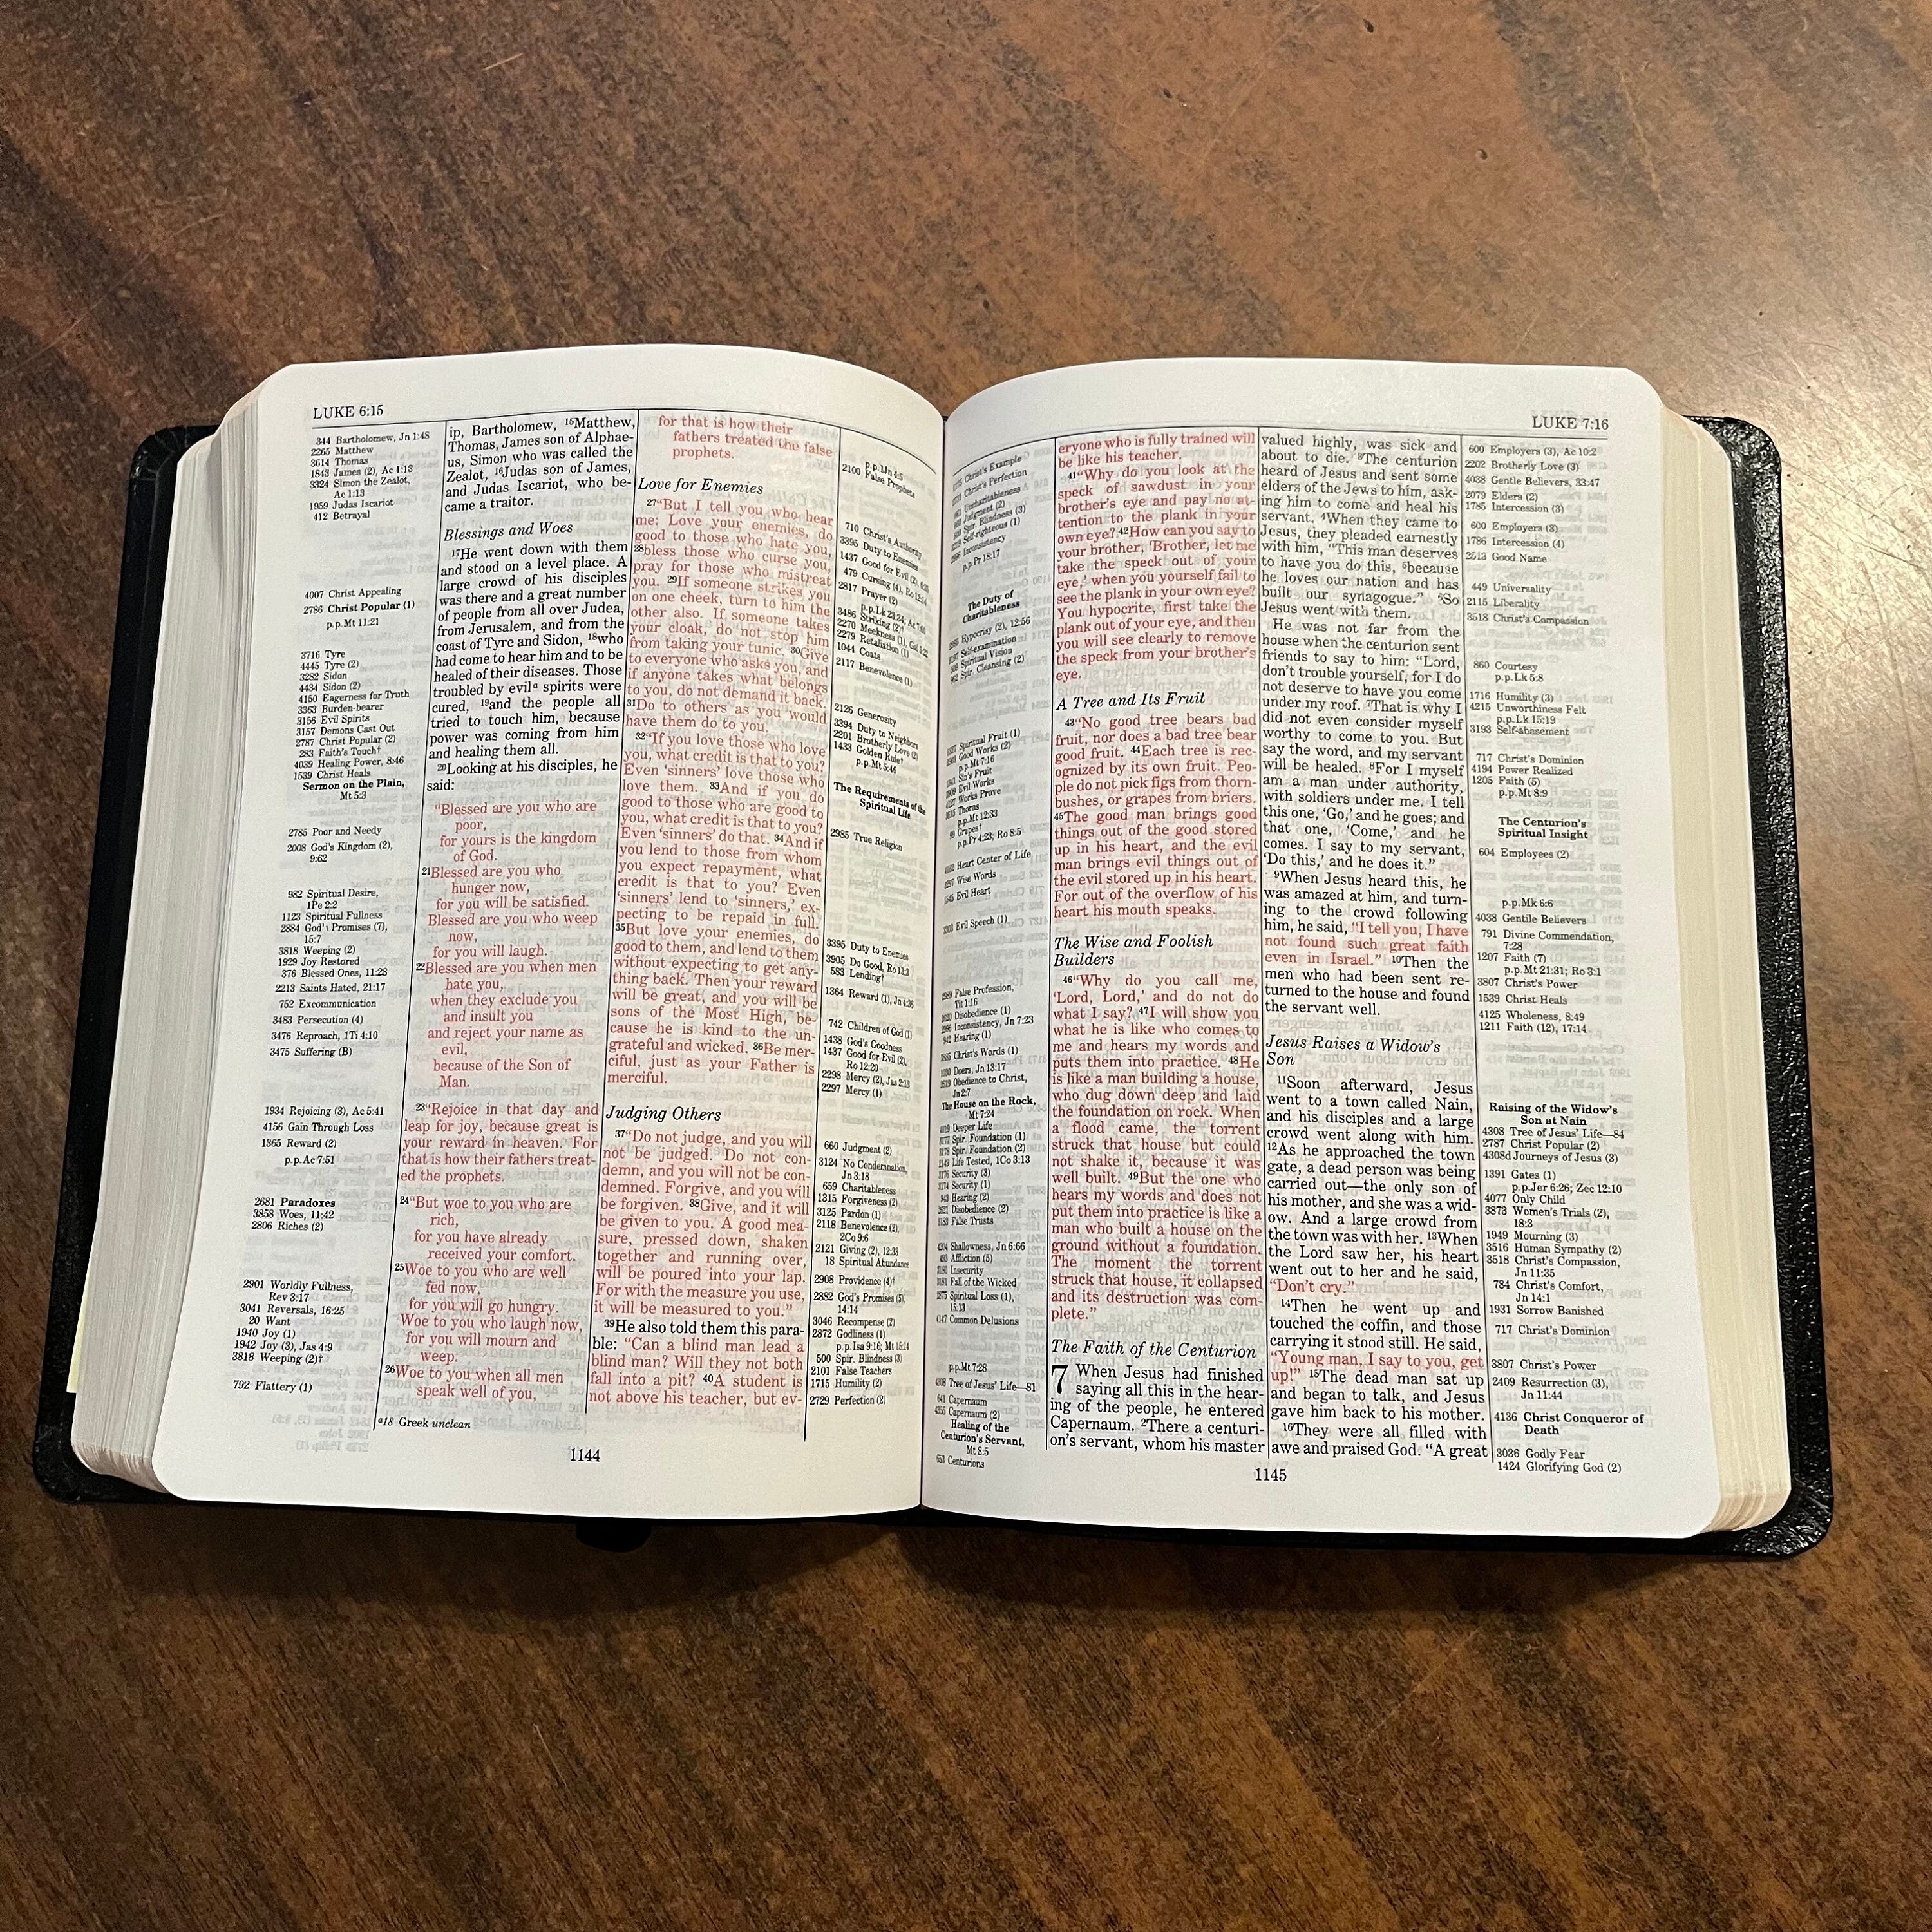 LUKE 6:15
344 Bartholomew, Jn 1:48
2265 Matthew
3614 Thomas
1843 James (2), Ac 1:13
3324 Simon the Zealot,
Ac 1:13
1959 Judas Iscariot
412 Betrayal
4007 Christ Appealing
2786 Christ Popular (1)
p.p. Mt 11:21
3716 Tyre
4445 Tyre (2)
3282 Sidon
4434 Sidon (2)
4150 Eagerness for Truth
3363 Burden-bearer
3156 Evil Spirits
3157 Demons Cast Out
2787 Christ Popular (2)
283 Faith's Touch†
4039 Healing Power, 8:46
1539 Christ Heals
Sermon on the Plain,
Mt 5:3
2785 Poor and Needy
2008 God's Kingdom (2),
9:62
982 Spiritual Desire,
1Pe 2:2
1123 Spiritual Fullness
2884 God's Promises (7),
15:7
3818 Weeping (2)
1929 Joy Restored
376 Blessed Ones, 11:28
2213 Saints Hated, 21:17
752 Excommunication
3483 Persecution (4)
3476 Reproach, 1Ti 4:10
3475 Suffering (B)
1934 Rejoicing (3), Ac 5:41
4156 Gain Through Loss
1365 Reward (2)
p.p. Ac 7:51
2681 Paradoxes
3858 Woes, 11:42
2806 Riches (2)
2901 Worldly Fullness,
Rev 3:17
3041 Reversals, 16:25
20 Want
1940 Joy (1)
1942 Joy (3), Jas 4:9
3818 Weeping (2)†
792 Flattery (1)
ip, Bartholomew, 15Matthew,
Thomas, James son of Alphae-
us, Simon who was called the
Zealot, 16Judas son of James,
and Judas Iscariot, who be-
came a traitor.
Blessings and Woes
17He went down with them
and stood on a level place. A
large crowd of his disciples
was there and a great number
of people from all over Judea,
from Jerusalem, and from the
coast of Tyre and Sidon, 18who
had come to hear him and to be
healed of their diseases. Those
troubled by evil a spirits were
cured, 19and the people all
tried to touch him, because
power was coming from him
and healing them all.
20Looking at his disciples, he
said:
"Blessed are you who are
poor,
for yours is the kingdom
of God.
21Blessed are you who
hunger now,
for you will be satisfied.
Blessed are you who weep
now,
for you will laugh.
22Blessed are you when men
hate you,
when they exclude you
and insult you
and reject your name as
evil,
because of the Son of
Man.
23"Rejoice in that day and
leap for joy, because great is
your reward in heaven. For
that is how their fathers treat-
ed the prophets.
24"But woe to you who are
rich,
for you have already
received your comfort.
25Woe to you who are well
fed now,
for you will go hungry.
Woe to you who laugh now,
for you will mourn and
weep.
26Woe to you when all men
speak well of you,
a18 Greek unclean
for that is how their
fathers treated the false
prophets.
Love for Enemies
27"But I tell you who hear
me: Love your enemies, do
good to those who hate you,
28bless those who curse you,
pray for those who mistreat
you. 29If someone strikes you
on one cheek, turn to him the
other also. If someone takes
your cloak, do not stop him
from taking your tunic. 30Give
to everyone who asks you, and
if anyone takes what belongs
to you, do not demand it back.
31Do to others as you would
have them do to you.
32"If you love those who love
you, what credit is that to you?
Even 'sinners' love those who
love them. 33And if you do
good to those who are good to
you, what credit is that to you?
Even 'sinners' do that. 34And if
you lend to those from whom
you expect repayment, what
credit is that to you? Even
'sinners' lend to 'sinners,' ex-
pecting to be repaid in full.
35But love your enemies, do
good to them, and lend to them
without expecting to get any-
thing back. Then your reward
will be great, and you will be
sons of the Most High, be-
cause he is kind to the un-
grateful and wicked. 36Be mer-
ciful, just as your Father is
merciful.
Judging Others
37"Do not judge, and you will
not be judged. Do not con-
demn, and you will not be con-
demned. Forgive, and you will
be forgiven. 38Give, and it will
be given to you. A good mea-
sure, pressed down, shaken
together and running over,
will be poured into your lap.
For with the measure you use,
it will be measured to you."
39He also told them this para-
ble: "Can a blind man lead a
blind man? Will they not both
fall into a pit? 40A student is
not above his teacher, but ev-
p.p. 1Jn 4:5
2100 False Prophets
710 Christ's Authority
3395 Duty to Enemies
1437 Good for Evil (2),
479 Cursing (4), Ro 12:14
2817 Prayer (2)
3486 Striking (2)†
2270 Meekness (1),
2279 Retaliation (1)
1044 Coats
2117 Benevolence (1)
2126 Generosity
3394 Duty to Neighbors
2201 Brotherly Love (2)
1433 Golden Rule†
p.p. Mt 5:46
The Requirements of the
Spiritual Life
2985 True Religion
3395 Duty to Enemies
3905 Do Good, Ro 13:3
583 Lending†
1364 Reward (1), Jn 4:36
742 Children of God (1)
1438 God's Goodness
1437 Good for Evil (2),
Ro 12:20
2298 Mercy (2), Jas 2:13
2297 Mercy (1)
660 Judgment (2)
3124 No Condemnation,
Jn 3:18
659 Charitableness
1315 Forgiveness (2)
3125 Pardon (1)
2118 Benevolence (2),
2Co 9:6
2121 Giving (2), 12:33
18 Spiritual Abundance
2908 Providence (4)†
2882 God's Promises (5),
14:14
3046 Recompense (2)
2872 Godliness (1)
p.p. Isa 9:16; Mt 15:14
500 Spir. Blindness (3)
2101 False Teachers
1715 Humility (2)
2729 Perfection (2)
1144
LUKE 7:16
Christ's Example
Christ's Perfection
Uncharitableness
Judgment (2)
Spir. Blindness (3)
Self-righteous (1)
Inconsistency
p.p. Pr 18:17
The Duty of
Charitableness
Hypocrisy (2), 12:56
Self-examination
Spiritual Vision
Spir. Cleansing (2)
Spiritual Fruit (1)
Good Works (2)
p.p. Mt 7:16
Sin's Fruit
Evil Works
Works Prove
Thorns
p.p. Mt 12:33
Grapes†
p.p. Pr 4:23; Ro 8:5
Heart Center of Life
Wise Words
Evil Heart
Evil Speech (1)
False Profession,
Tit 1:16
Disobedience (1)
Inconsistency, Jn 7:23
Hearing (1)
Christ's Words (1)
Doers, Jn 13:17
Obedience to Christ,
Jn 2:7
The House on the Rock,
Mt 7:24
Deeper Life
Spir. Foundation (1)
Spir. Foundation (2)
Life Tested, 1Co 3:13
Security (3)
Security (1)
Hearing (2)
Disobedience (2)
False Trusts
Shallowness, Jn 6:66
Affliction (5)
Insecurity
Fall of the Wicked
Spiritual Loss (1),
15:13
Common Delusions
p.p. Mt 7:28
Tree of Jesus' Life—81
Capernaum
Capernaum (2)
Healing of the
Centurion's Servant,
Mt 8:5
Centurions
eryone who is fully trained will
be like his teacher.
41"Why do you look at the
speck of sawdust in your
brother's eye and pay no at-
tention to the plank in your
own eye? 42How can you say to
your brother, 'Brother, let me
take the speck out of your
eye,' when you yourself fail to
see the plank in your own eye?
You hypocrite, first take the
plank out of your eye, and then
you will see clearly to remove
the speck from your brother's
eye.
A Tree and Its Fruit
43"No good tree bears bad
fruit, nor does a bad tree bear
good fruit. 44Each tree is rec-
ognized by its own fruit. Peo-
ple do not pick figs from thorn-
bushes, or grapes from briers.
45The good man brings good
things out of the good stored
up in his heart, and the evil
man brings evil things out of
the evil stored up in his heart.
For out of the overflow of his
heart his mouth speaks.
The Wise and Foolish
Builders
46"Why do you call me,
'Lord, Lord,' and do not do
what I say? 47I will show you
what he is like who comes to
me and hears my words and
puts them into practice. 48He
is like a man building a house,
who dug down deep and laid
the foundation on rock. When
a flood came, the torrent
struck that house but could
not shake it, because it was
well built. 49But the one who
hears my words and does not
put them into practice is like a
man who built a house on the
ground without a foundation.
The moment the torrent
struck that house, it collapsed
and its destruction was com-
plete."
The Faith of the Centurion
7 When Jesus had finished
saying all this in the hear-
ing of the people, he entered
Capernaum. 2There a centuri-
on's servant, whom his master
valued highly, was sick and
about to die. 3The centurion
heard of Jesus and sent some
elders of the Jews to him, ask-
ing him to come and heal his
servant. 4When they came to
Jesus, they pleaded earnestly
with him, "This man deserves
to have you do this, 5because
he loves our nation and has
built our synagogue." 6So
Jesus went with them.
He was not far from the
house when the centurion sent
friends to say to him: "Lord,
don't trouble yourself, for I do
not deserve to have you come
under my roof. 7That is why I
did not even consider myself
worthy to come to you. But
say the word, and my servant
will be healed. 8For I myself
am a man under authority,
with soldiers under me. I tell
this one, 'Go,' and he goes; and
that one, 'Come,' and he
comes. I say to my servant,
'Do this,' and he does it."
9When Jesus heard this, he
was amazed at him, and turn-
ing to the crowd following
him, he said, "I tell you, I have
not found such great faith
even in Israel." 10Then the
men who had been sent re-
turned to the house and found
the servant well.
Jesus Raises a Widow's
Son
11Soon afterward, Jesus
went to a town called Nain,
and his disciples and a large
crowd went along with him.
12As he approached the town
gate, a dead person was being
carried out—the only son of
his mother, and she was a wid-
ow. And a large crowd from
the town was with her. 13When
the Lord saw her, his heart
went out to her and he said,
"Don't cry."
14Then he went up and
touched the coffin, and those
carrying it stood still. He said,
"Young man, I say to you, get
up!" 15The dead man sat up
and began to talk, and Jesus
gave him back to his mother.
16They were all filled with
awe and praised God. "A great
600 Employers (3), Ac 10:2
2202 Brotherly Love (3)
4038 Gentile Believers, 33:47
2079 Elders (2)
1785 Intercession (3)
600 Employers (3)
1786 Intercession (4)
2513 Good Name
449 Universality
2115 Liberality
3518 Christ's Compassion
860 Courtesy
p.p. Lk 5:8
1716 Humility (3)
4215 Unworthiness Felt
p.p. Lk 15:19
3193 Self-abasement
717 Christ's Dominion
4194 Power Realized
1205 Faith (5)
p.p. Mt 8:9
The Centurion's
Spiritual Insight
604 Employees (2)
p.p. Mk 6:6
4038 Gentile Believers
791 Divine Commendation,
7:28
1207 Faith (7)
p.p. Mt 21:31; Ro 3:1
3807 Christ's Power
1539 Christ Heals
4125 Wholeness, 8:49
1211 Faith (12), 17:14
Raising of the Widow's
Son at Nain
4308 Tree of Jesus' Life—84
2787 Christ Popular (2)
4308d Journeys of Jesus (3)
1391 Gates (1)
p.p. Jer 6:26; Zec 12:10
4077 Only Child
3873 Women's Trials (2),
18:3
1949 Mourning (3)
3516 Human Sympathy (2)
3518 Christ's Compassion,
Jn 11:35
784 Christ's Comfort,
Jn 14:1
1931 Sorrow Banished
717 Christ's Dominion
3807 Christ's Power
2409 Resurrection (3),
Jn 11:44
4136 Christ Conqueror of
Death
3036 Godly Fear
1424 Glorifying God (2)
1145